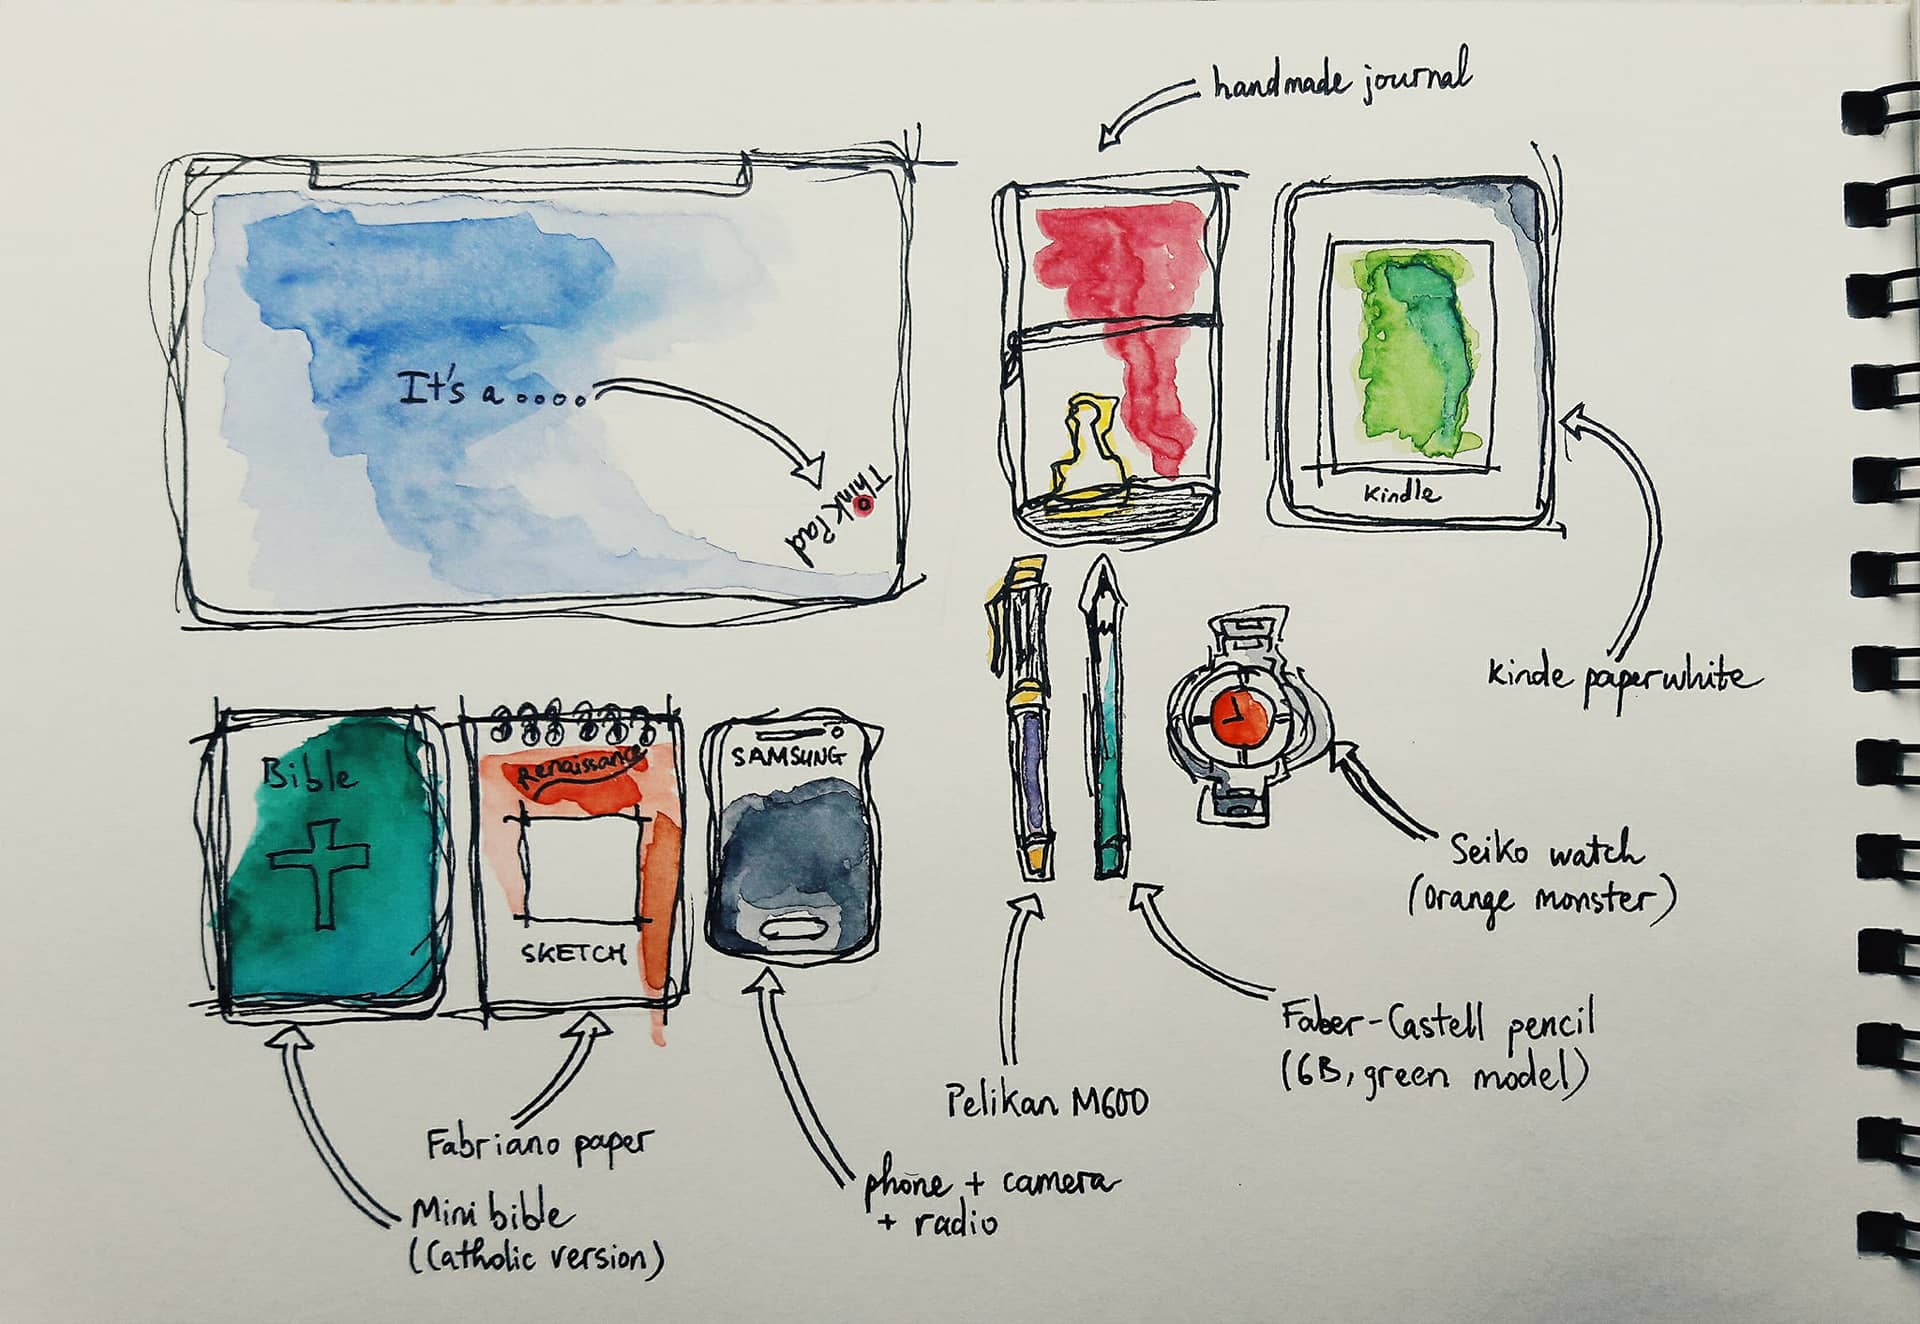 handmade journal
It's a ....
ThinkPad
Kindle
kinde paperwhite
Bible
Renaissance
SKETCH
SAMSUNG
Seiko watch
(orange monster)
Faber-Castell pencil
(6B, green model)
Pelikan M600
Fabriano paper
phone + camera
+ radio
Mini bible
(Catholic version)